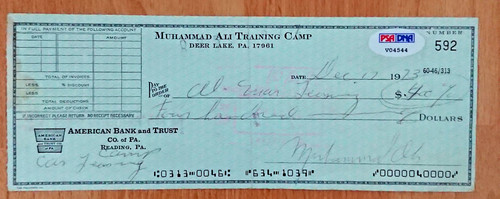 IN FULL PAYMENT OF THE FOLLOWING ACCOUNT
DATE AMOUNT
TOTAL OF INVOICE
LESS % DISCOUNT
LESS
TOTAL DEDUCTIONS
AMOUNT OF CHECK
IF INCORRECT PLEASE RETURN. NO RECEIPT NECESSARY
MUHAMMAD ALI TRAINING CAMP
DEER LAKE, PA. 17961
PSA DNA
V04544
NUMBER
592
DATE Dec 17 1973 60-46/313
PAY TO THE ORDER OF
$
DOLLARS
AMERICAN BANK AND TRUST CO. OF PA.
AMERICAN BANK AND TRUST
CO. OF PA.
READING, PA.
Camp
Muhammad Ali
⑆0313⑉0046⑆ ⑈634⑉1039⑈ ⑈0000040000⑈